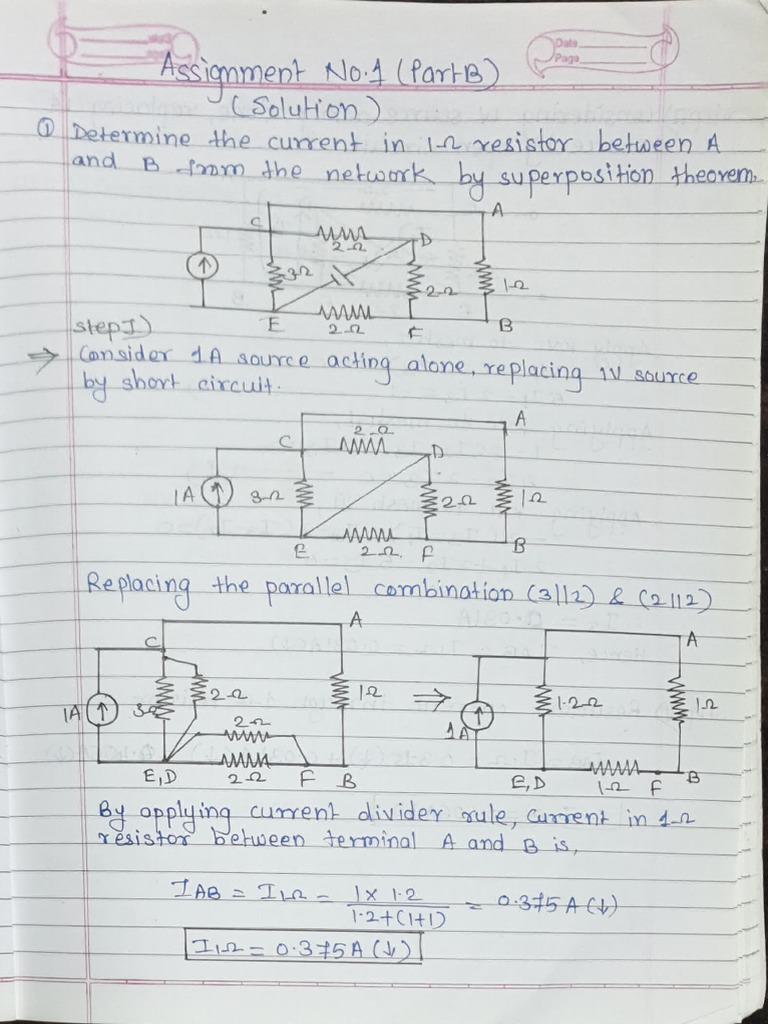 Date
Page
Assignment No.1 (Part B)
(Solution)
① Determine the current in 1Ω resistor between A
and B from the network by superposition theorem.
C
A
2Ω
D
3Ω
2Ω
1Ω
E
2Ω
F
B
step I)
⇒ Consider 1A source acting alone, replacing 1V source
by short circuit.
A
2Ω
C
D
1A
3Ω
2Ω
1Ω
E
2Ω
F
B
Replacing the parallel combination (3||2) & (2||2)
C
A
1A
3Ω
2Ω
1Ω
2Ω
2Ω
E,D
F
B
⇒
A
1A
1.2Ω
1Ω
E,D
1Ω
F
B
By applying current divider rule, current in 1Ω
resistor between terminal A and B is,
IAB = I1Ω = 1 x 1.2 / 1.2+(1+1) = 0.375 A (↓)
I1Ω = 0.375 A (↓)